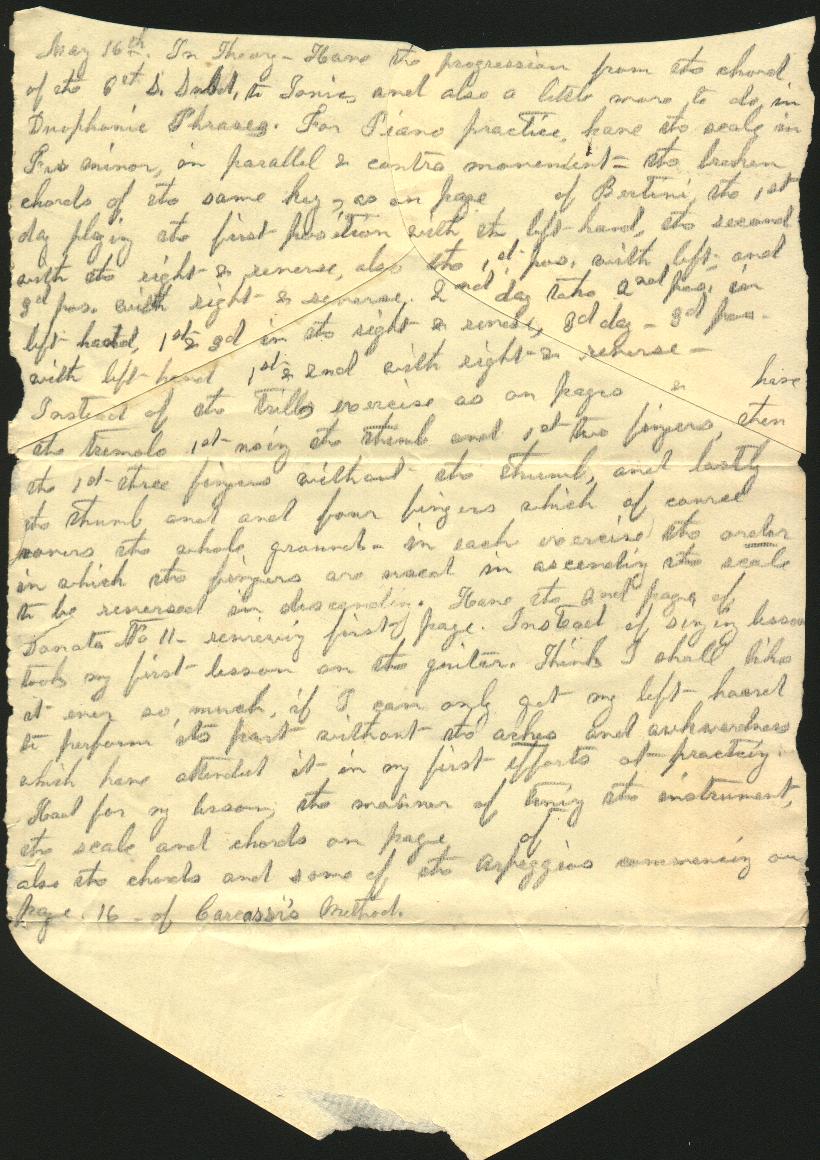 May 16th. In Theory - Have the progression from the chord
of the 6th & Subd, to Tonic, and also a little more to do in
Duophonic Phrases. For Piano practice, have the scale in
Fis minor, in parallel & contra movement - the broken
chords of the same key, as on page of Bertini, the 1st
day playing the first position with the left hand, the second
with the right & reverse, also the 1st pos. with left and
3d pos. with right & reverse. 2nd day take 2nd pos. in
left hand, 1st & 3d in the right & reverse, 3d day - 3d pos.
with left hand 1st & 2nd with right & reverse -
Instead of the trills exercise as on pages & have
the tremolo 1st using the thumb and 1st two fingers, then
the 1st three fingers without the thumb, and lastly
the thumb and and four fingers which of course
covers the whole ground - in each exercise the order
in which the fingers are used in ascending the scale
to be reversed in descending. Have the 2nd page of
Sonata No 11 - reviewing first page. Instead of singing lesson
took my first lesson on the guitar. Think I shall like
it ever so much, if I can only get my left hand
to perform its part without the aches and awkwardness
which have attended it in my first efforts at practicing.
Had for my lesson, the manner of tuning the instrument,
the scale and chords on page of
also the chords and some of the Arpeggios commencing on
page. 16 - of Carcassi's Method.